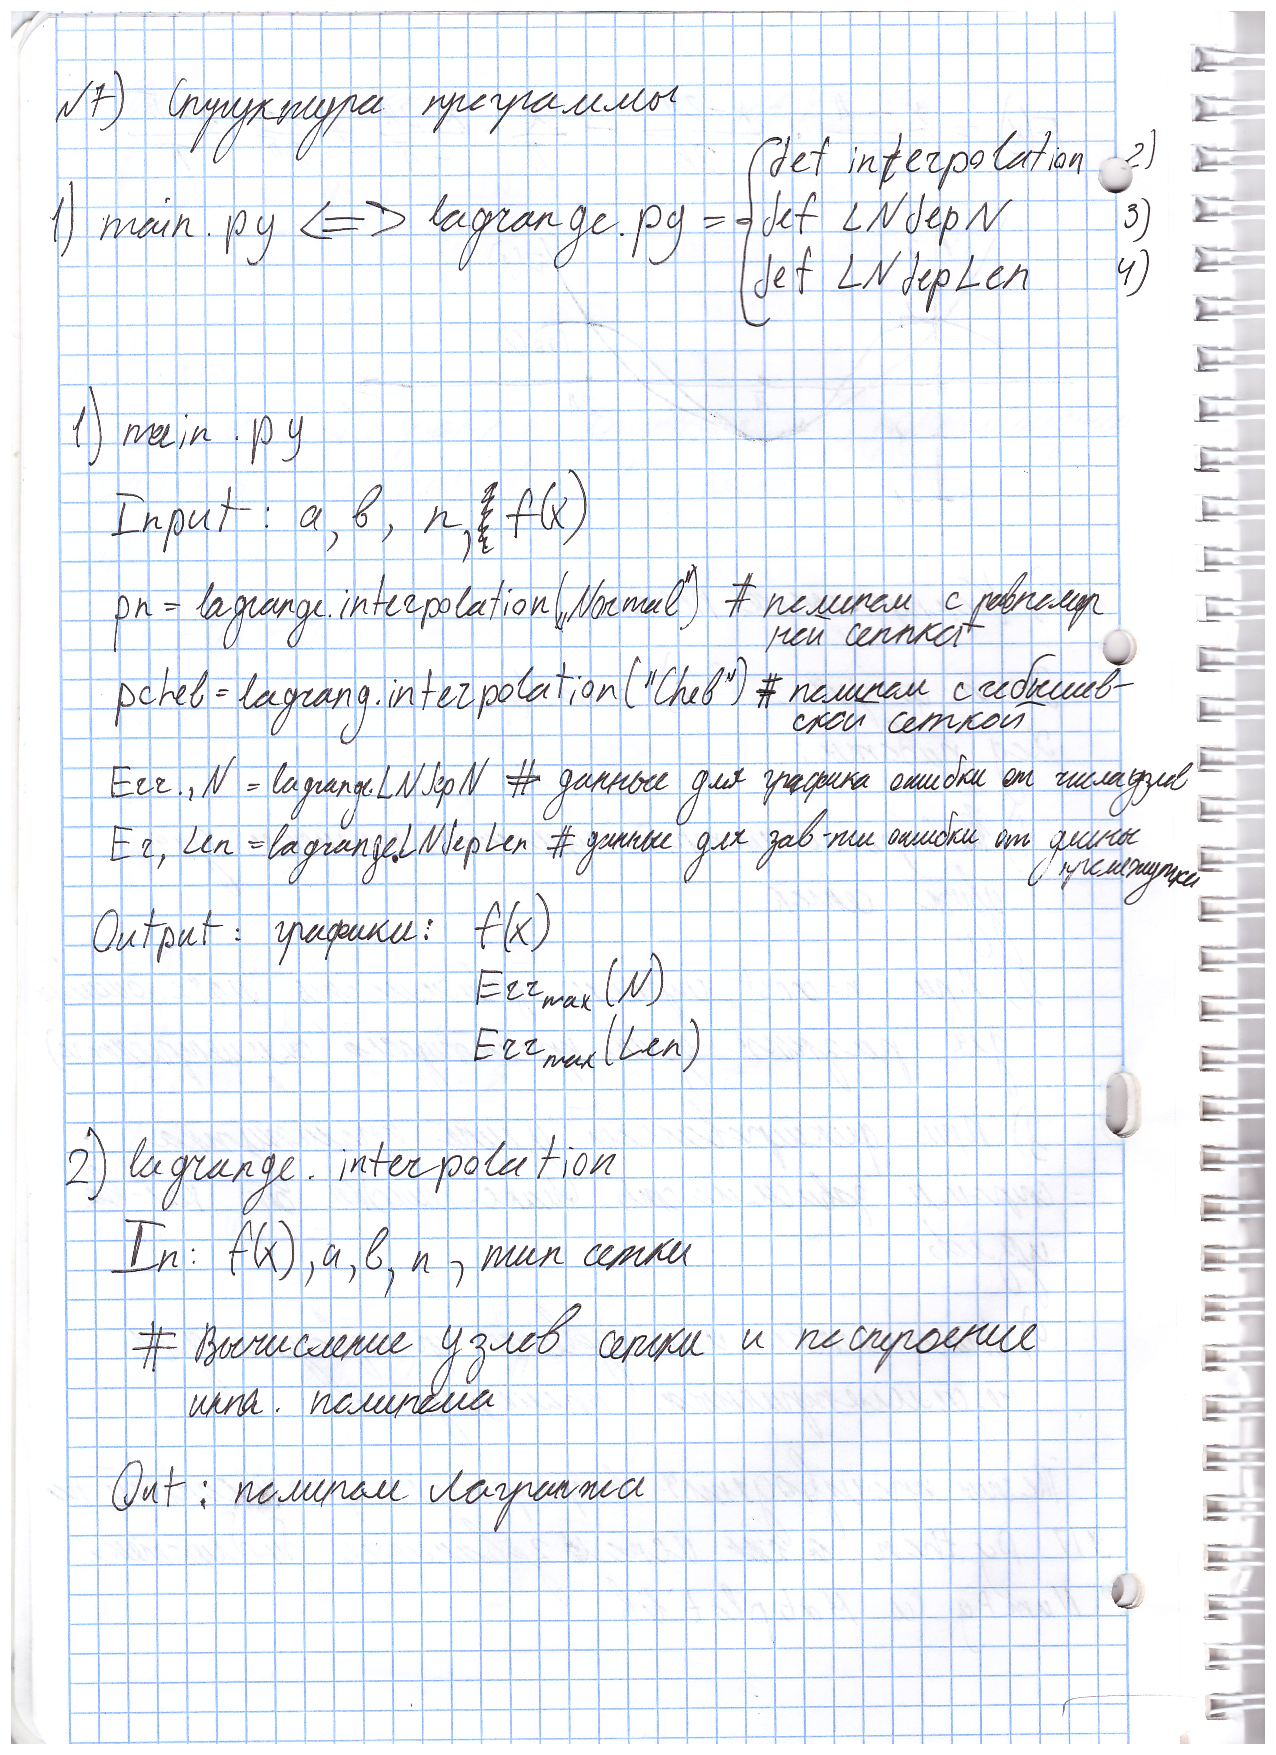 №7) Структура программы
def interpolation 2)
1) main.py <=> lagrange.py = def LNdepN 3)
def LNdepLen 4)
1) main.py
Input: a, b, n, f(x)
pn = lagrange.interpolation("Normal") # полином с равномер
ной сеткой
pcheb = lagrang.interpolation("Cheb") # полином с чебышев-
ской сеткой
Err., N = lagrange.LNdepN # данные для графика ошибки от числа узлов
Er, Len = lagrange.LNdepLen # данные для зав-ти ошибки от длины
промежутка
Output: графики: f(x)
Err max (N)
Err max (Len)
2) lagrange.interpolation
In: f(x), a, b, n, тип сетки
# Вычисление узлов сетки и построение
инт. полинома
Out: полином Лагранжа